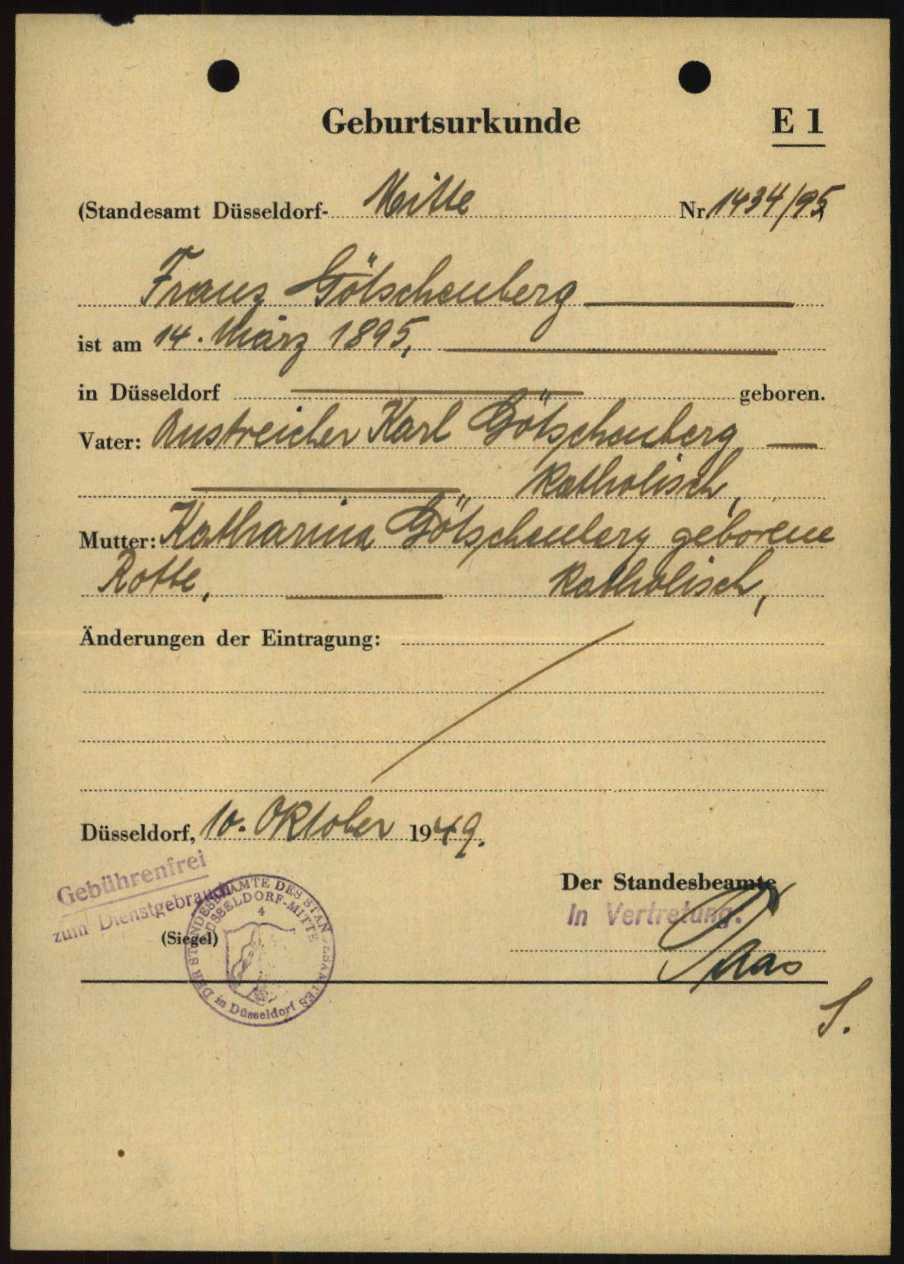 Geburtsurkunde E 1
(Standesamt Düsseldorf- Mitte Nr. 1434/95
Franz Götschenberg
ist am 14. März 1895,
in Düsseldorf geboren.
Vater: Anstreicher Karl Götschenberg
katholisch,
Mutter: Katharina Götschenberg geborene
Rotte, katholisch,
Änderungen der Eintragung:
Düsseldorf, 10. Oktober 1949.
Gebührenfrei
zum Dienstgebrauch
(Siegel)
DER STANDESBEAMTE DES STANDESAMTES
DÜSSELDORF-MITTE
4
in Düsseldorf
Der Standesbeamte
In Vertretung.
S.